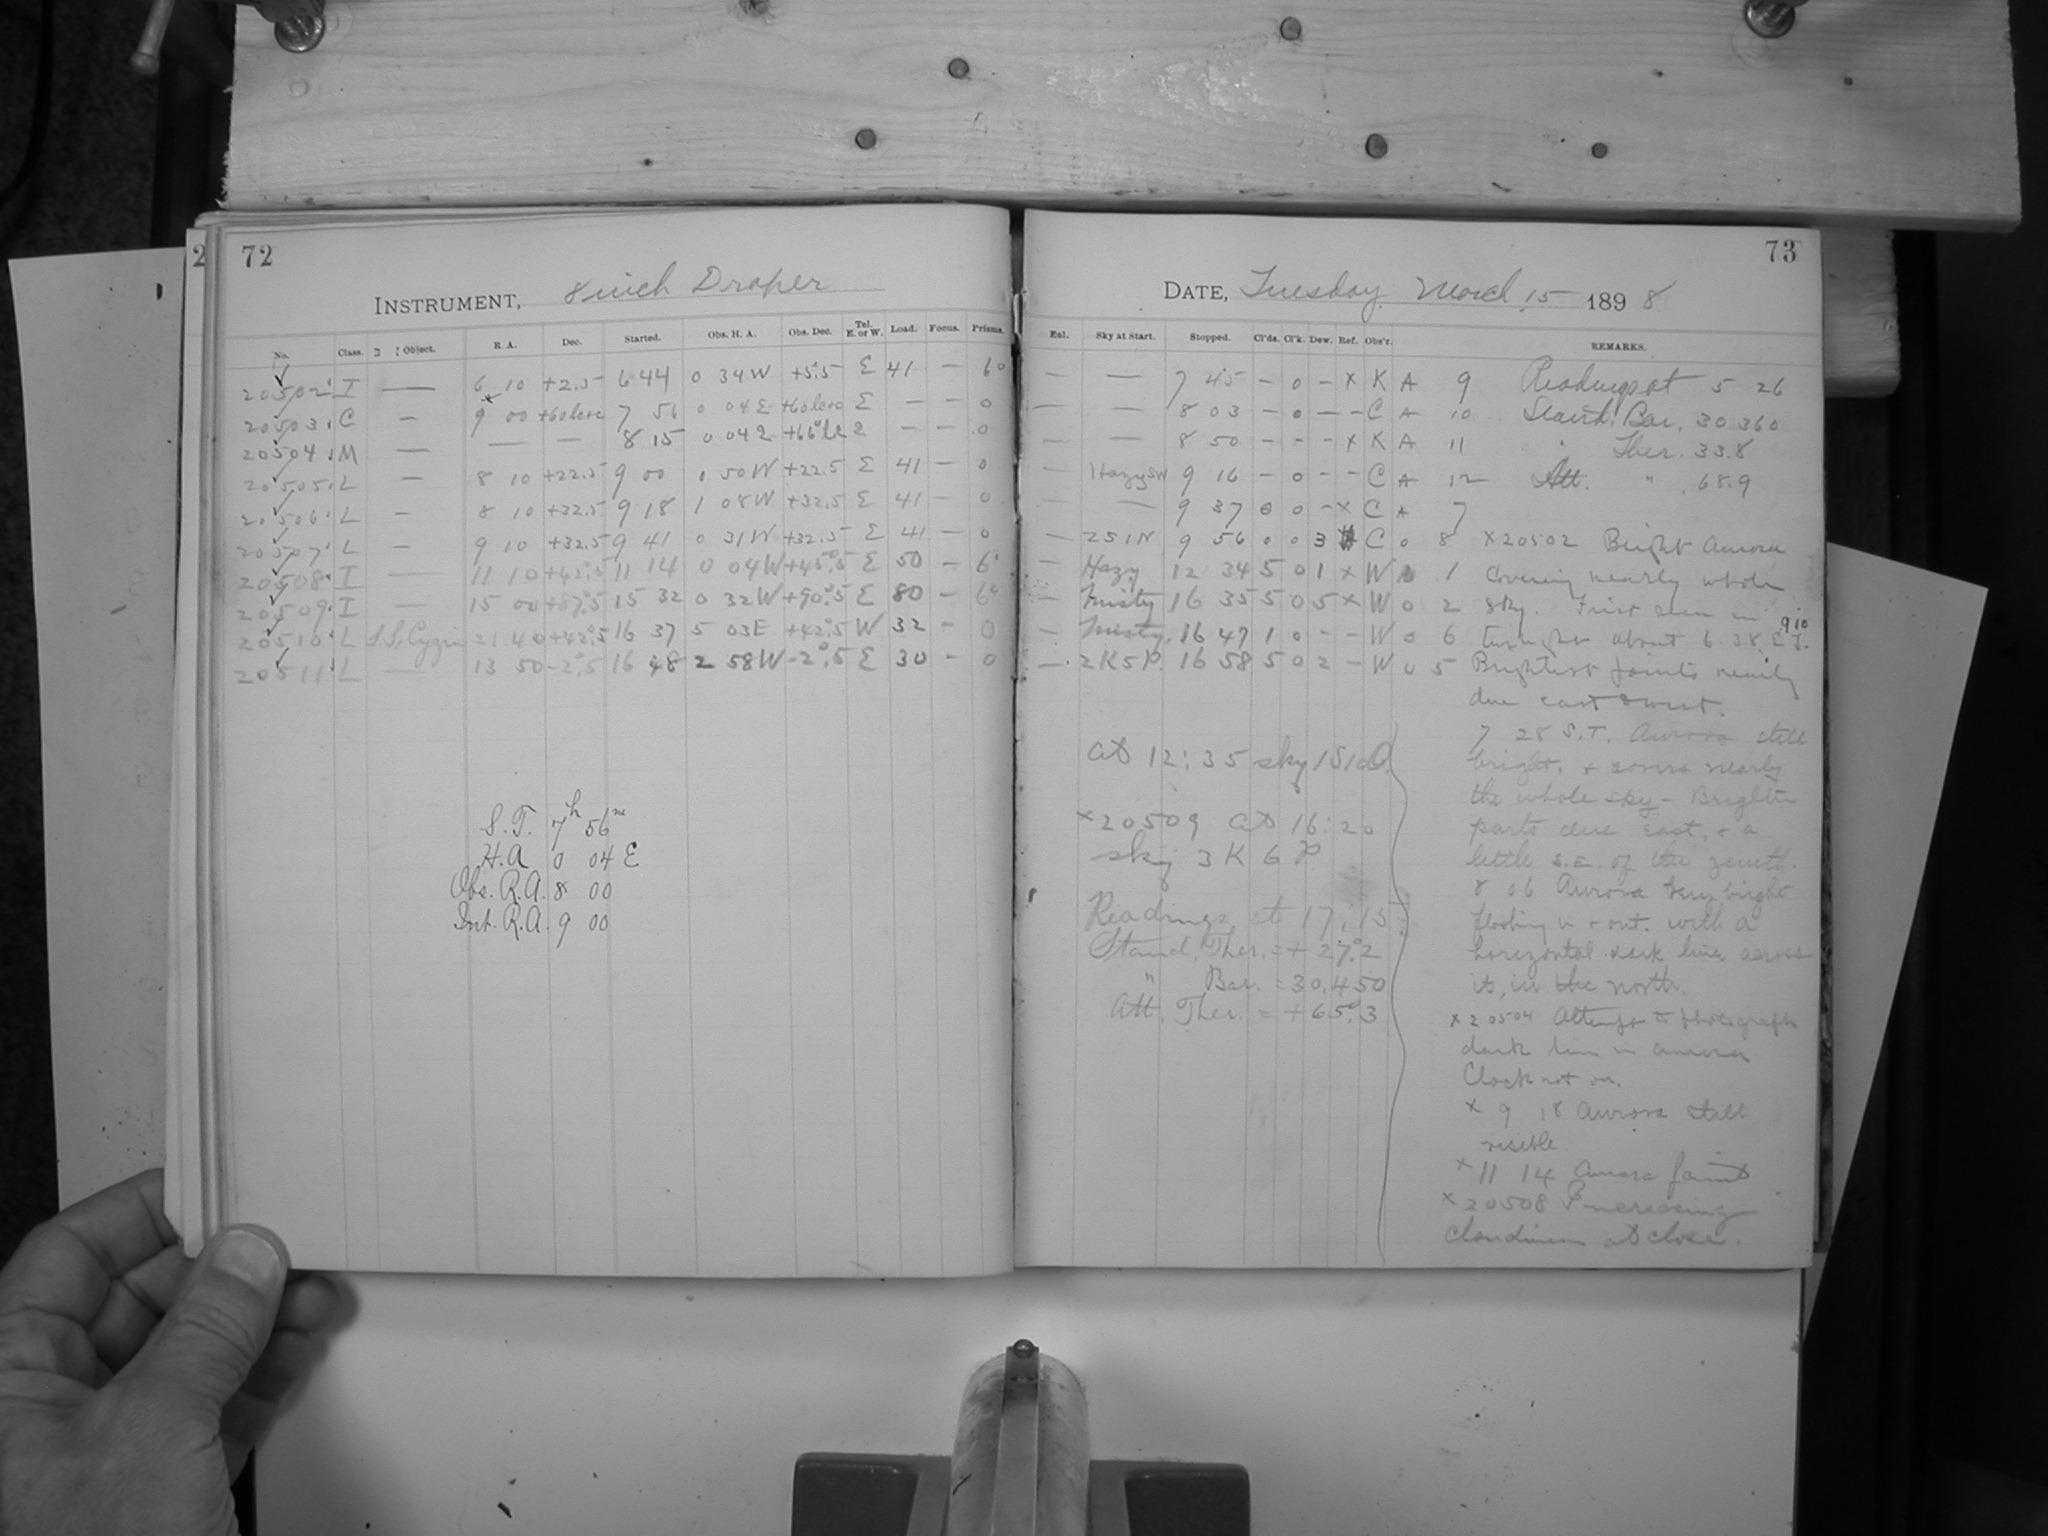 2
72
INSTRUMENT, 8 inch Draper
No. Class. Object. R. A. Dec. Started. Obs. H. A. Obs. Dec. Tel. E. or W. Load. Focus. Prisms.
20502 I — 6 10 +2.5 6 44 0 34 W +5.5 E 41 — 6°
20503 C — 9 00 7 56 0 04 E E — — 0
20504 M — — — 8 15 0 04 — — 0
20505 L — 8 10 +22.5 9 00 0 50 W +22.5 E 41 — 0
20506 L — 8 10 +32.5 9 18 1 08 W +32.5 E 41 — 0
20507 L — 9 10 +32.5 9 41 0 31 W +32.5 E 41 — 0
20508 I — 11 10 +42.5 11 14 0 04 W +45°.5 E 50 — 6°
20509 I — 15 00 +87.5 15 32 0 32 W +90°.5 E 80 — 6°
20510 L S.S. Cygni 21 40 +42°.5 16 37 5 03 E +42°.5 W 32 — 0
20511 L — 13 50 -2°.5 16 48 2 58 W -2°.5 E 30 — 0
S.T. 7h 56m
H.A 0 04 E
Obs. R.A. 8 00
Int. R.A. 9 00
73
DATE, Tuesday March 15 1898
Exl. Sky at Start. Stopped. Cl'ds. Cl'k. Dew. Ref. Obs'r. REMARKS.
— — 7 45 — 0 — x K A 9 Readings at 5 26
— — 8 03 — 0 — — C A 10 Stand. Bar. 30.360
— — 8 50 — — — x K A 11 " Ther. 33.8
— Hazy SW 9 16 — 0 — — C A 12 Att. " 68.9
— — 9 37 0 0 — x C A 7
— 2S1N 9 56 0 0 3 C 0 8 x20502 Bright Aurora
— Hazy 12 34 5 0 1 x W 1 covering nearly whole
— Misty 16 35 5 0 5 x W 0 2 sky. First seen in
— Misty 16 47 1 0 — — W 0 6 about 6 38
— 2K5P. 16 58 5 0 2 — W 0 5 Brightest points nearly
due east & west.
7 28 S.T. Aurora still
bright, & covers nearly
the whole sky — Brighter
parts due east, & a
little S.E. of the zenith.
8 06 Aurora very bright
floating in & out. with a
horizontal dark line across
it, in the north.
x20504 Attempt to photograph
dark line in aurora
Clock not on.
x 9 18 Aurora still
visible
x 11 14 Aurora faint
x20508 Increasing
cloudiness at close.
At 12:35 sky
x20509 At 16:20
sky 3 K 6 P
Readings at 17:15
Stand. Ther. = +27°.2
" Bar. = 30.450
Att. Ther. = +65°.3